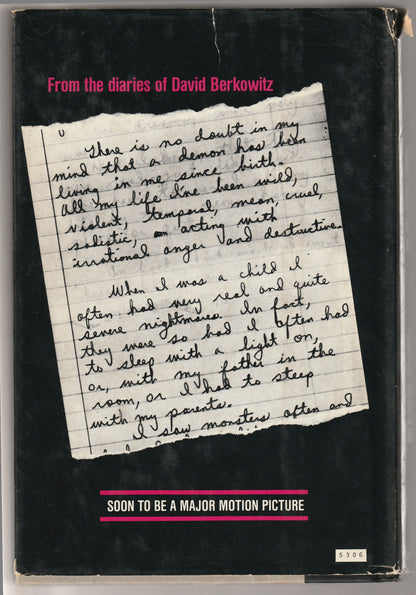 From the diaries of David Berkowitz
There is no doubt in my
mind that a demon has been
living in me since birth.
All my life I've been wild,
violent, temporal, mean, cruel,
sadistic, acting with
irrational anger and destructive.
When I was a child I
often had very real and quite
severe nightmares. In fact,
they were so bad I often had
to sleep with a light on,
or, with my father in the
room, or I had to sleep
with my parents.
I saw monsters often and
SOON TO BE A MAJOR MOTION PICTURE
5306